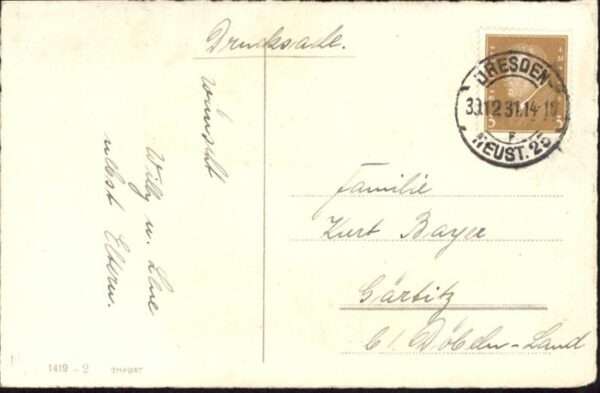 Drucksache.
wünscht
Willy u. Lene
nebst Eltern.
DRESDEN-
30.12.31.14-15
F
NEUST. 25
3
3
Familie
Kurt Bayer
Gärtitz
b/ Döbeln-Land
1419 - 2